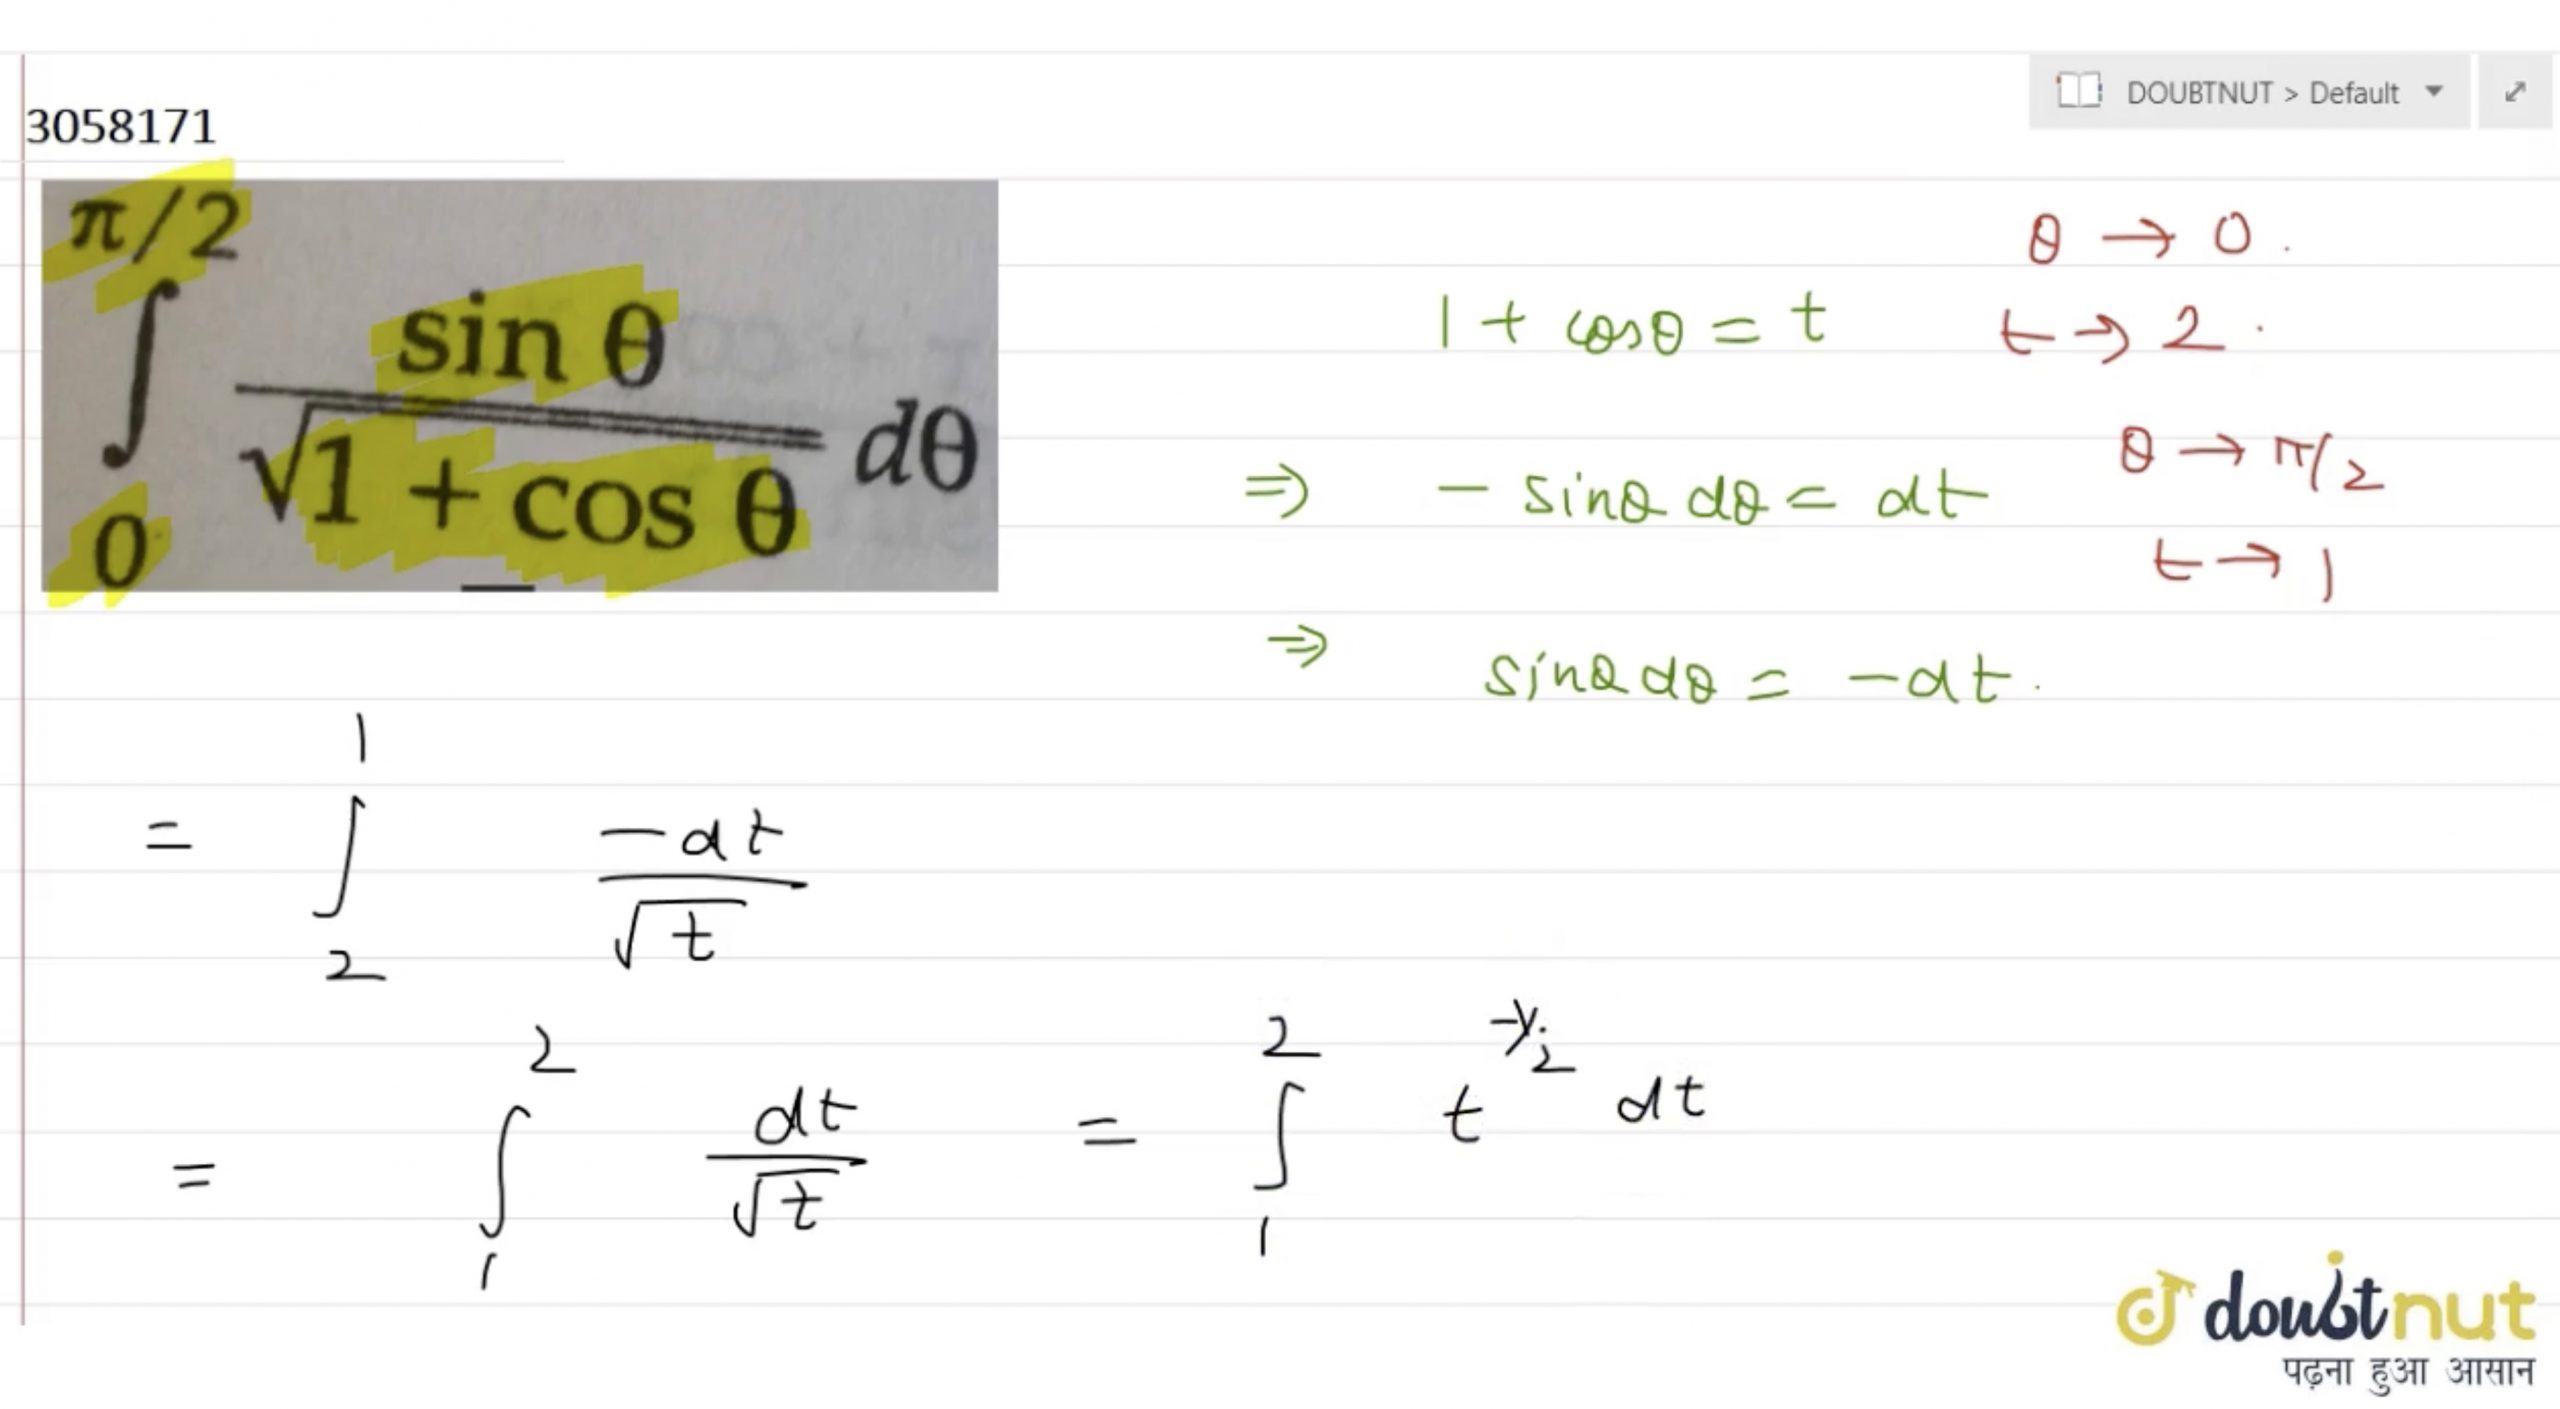 DOUBTNUT > Default
3058171
π/2
∫ sin θ / √1 + cos θ dθ
0
1 + cosθ = t
θ → 0.
t → 2.
⇒ - sinθ dθ = dt
θ → π/2
t → 1
⇒ sinθ dθ = -dt.
1
= ∫ -dt / √t
2
2
= ∫ dt / √t
1
2
= ∫ t^-1/2 dt
1
doubtnut
पढ़ना हुआ आसान